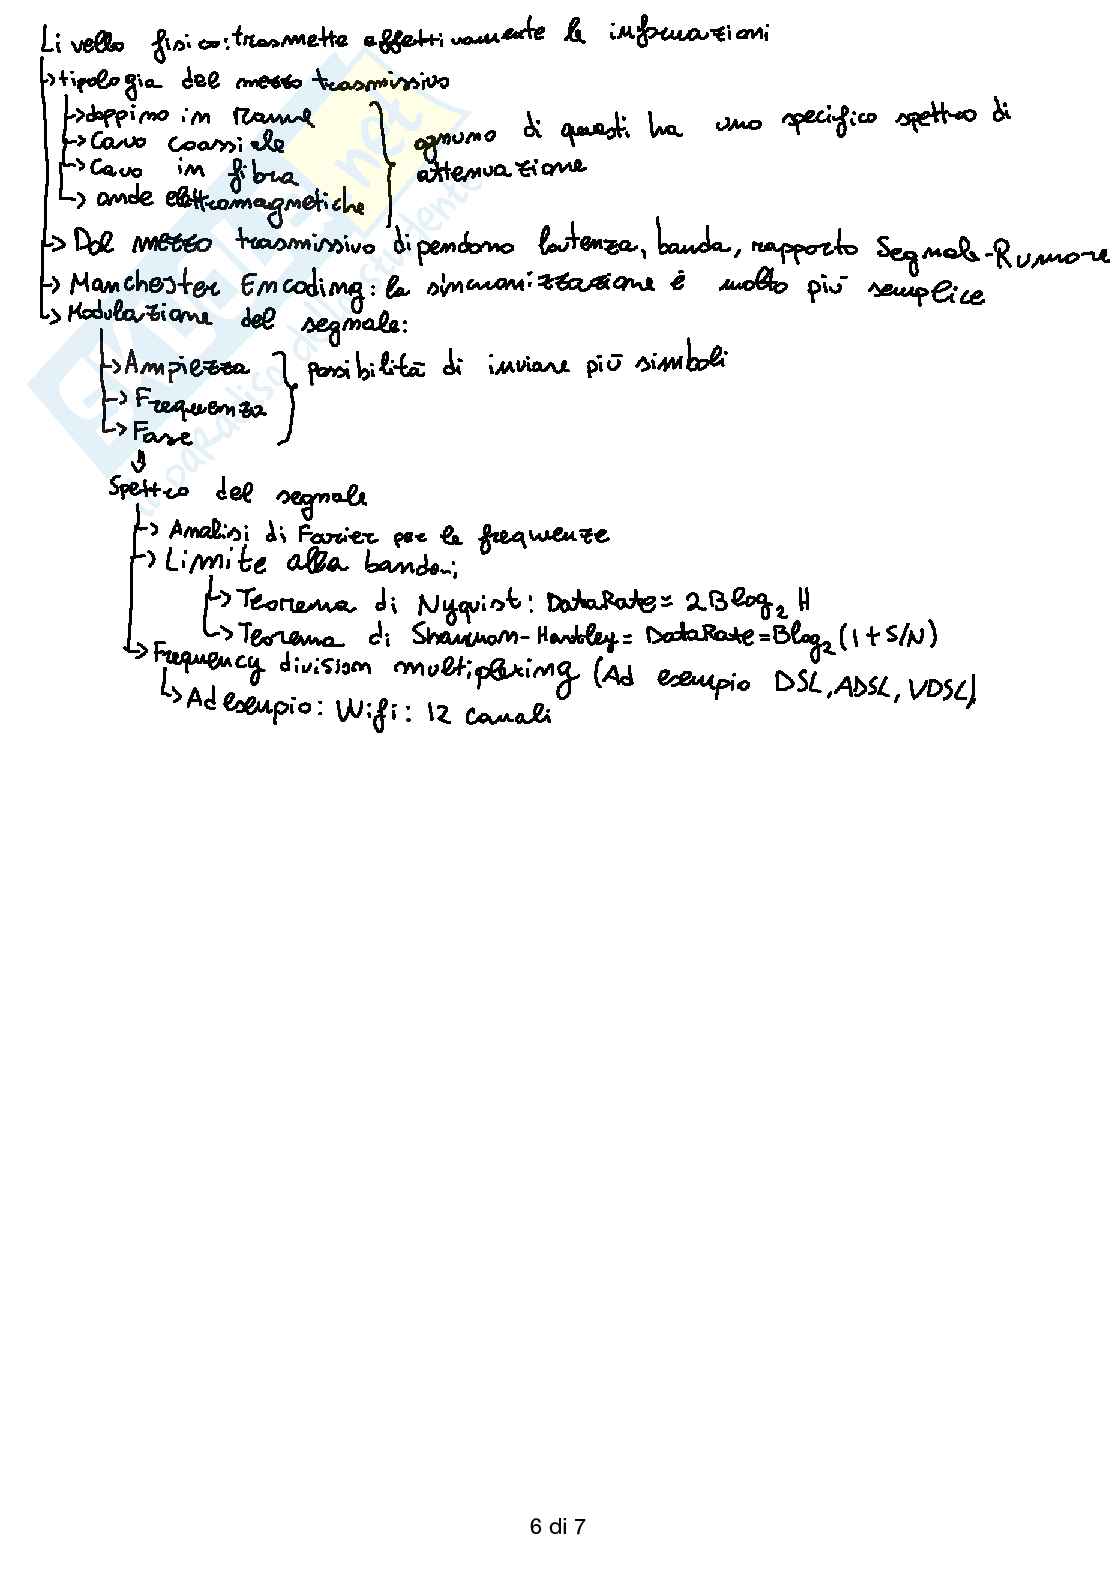 Livello fisico: trasmette effettivamente le informazioni
→ tipologia del mezzo trasmissivo
→ doppino in rame
→ Cavo coassiale
→ Cavo in fibra
→ onde elettromagnetiche
ognuno di questi ha uno specifico spettro di
attenuazione
→ Dal mezzo trasmissivo dipendono latenza, banda, rapporto Segnale-Rumore
→ Manchester Encoding: la sincronizzazione è molto più semplice
→ Modulazione del segnale:
→ Ampiezza
→ Frequenza
→ Fase
possibilità di inviare più simboli
Spettro del segnale
→ Analisi di Forier per le frequenze
→ Limite alla banda:
→ Teorema di Nyquist: DataRate = 2Blog₂ H
→ Teorema di Shannon-Hartley = DataRate = Blog₂ (1 + S/N)
→ Frequency division multiplexing (Ad esempio DSL, ADSL, VDSL)
→ Ad esempio: Wifi: 12 canali
6 di 7